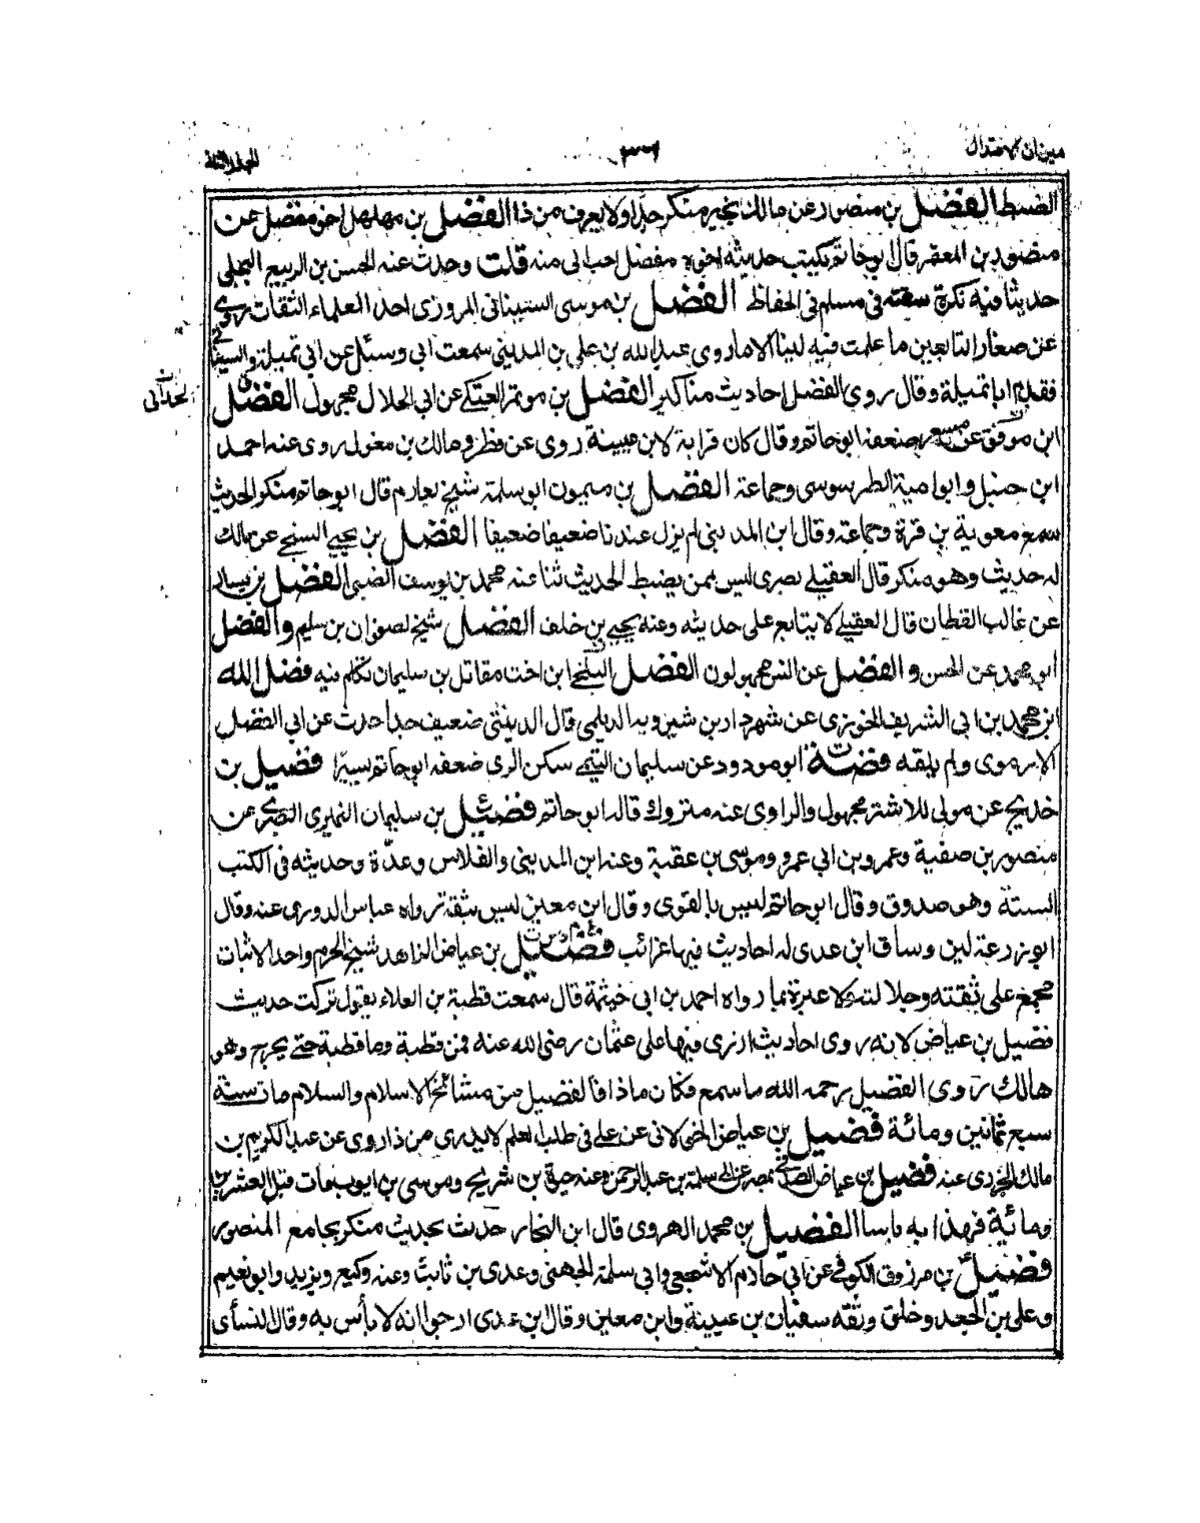 ميزان الاعتدال
٣٠٦
الجلد الثانى
الضبط الفضل بن منصور عن مالك بخبر منكر جدا ولا يعرف من ذا الفضل بن مهلهل اخو مفضل عن
منصور بن المعتمر قال ابو حاتم يكتب حديثه اخوه مفضل احب الى منه قلت وحدث عنه الحسن بن الربيع البجلى
حديثا فيه نكرة سقته فى مسلم فى الحفاظ الفضل بن موسى السينانى المروزى احد العلماء الثقات روى
عن صغار التابعين ما علمت فيه لينا الا ما روى عبد الله بن على بن المدينى سمعت ابى وسئل عن ابى تميلة والسينانى
فقدم ابا تميلة وقال روى الفضل احاديث مناكير الفضل بن موتمر العتكى عن ابى الحلال مجهول الفضل
الحدانى
ابن موفق عن مسعر ضعفه ابو حاتم وقال كان قرابة لابن عيينة روى عن فطر ومالك بن مغول روى عنه احمد
ابن حنبل وابو امية الطرسوسى وجماعة الفضل بن ميمون ابو سلمة شيخ لعارم قال ابو حاتم منكر الحديث
سمع معوية بن قرة وجماعة وقال ابن المدينى لم يزل عندنا ضعيفا ضعيفا الفضل بن يحيى السنجى عن مالك
له حديث وهو منكر قال العقيلى بصرى ليس ممن يضبط الحديث ثنا عنه محمد بن يوسف الضبى الفضل بن يسار
عن غالب القطان قال العقيلى لا يتابع على حديثه وعنه يحيى بن خلف الفضل شيخ لصفوان بن سليم والفضل
ابو محمد عن الحسن والفضل عن انس مجهولون الفضل البلخى ابن اخت مقاتل بن سليمان تكلم فيه فضل الله
ابن محمد بن ابى الشريف الخوزى عن شهردار بن شيرويه الديلمى قال الدبيثى ضعيف جدا حدث عن ابى الفضل
الارموى ولم يلقه فضة ابو مودود عن سليمان التيمى سكن الرى ضعفه ابو حاتم يسيرا فضيل بن
خديج عن مولى للاشتر مجهول والراوى عنه متروك قاله ابو حاتم فضيل بن سليمان النميرى البصرى عن
منصور بن صفية وعمرو بن ابى عمرو وموسى بن عقبة وعنه ابن المدينى والفلاس وعدة وحديثه فى الكتب
الستة وهو صدوق وقال ابو حاتم ليس بالقوى وقال ابن معين ليس بثقة رواه عباس الدورى عنه وقال
ابو زرعة لين وساق ابن عدى له احاديث فيها غرائب فضيل بن عياض الزاهد شيخ الحرم واحد الاثبات
مجمع على ثقته وجلالته ولا عبرة بما رواه احمد بن ابى خيثمة قال سمعت قطبة بن العلاء يقول تركت حديث
فضيل بن عياض لانه روى احاديث ازرى فيها على عثمان رضى الله عنه فمن قطبة وما قطبة حتى يجرح وهو
هالك روى الفضيل رحمه الله ما سمع فكان ماذا فالفضيل من مشائخ الاسلام والسلام مات سنة
سبع ثمانين ومائة فضيل بن عياض الخولانى عن على فى طلب العلم لا يدرى من ذا روى عن عبد الكريم بن
مالك الجزرى عنه فضيل بن عياض الصدفى بمصر عن ابى سلمة بن عبد الرحمن وعنه حيوة بن شريح وموسى بن ايوب مات قبل العشرين
ومائة فهذا ما به باسا الفضيل بن محمد الهروى قال ابن النجار حدث بحديث منكر بجامع المنصور
فضيل بن مرزوق الكوفى عن ابى حازم الاشجعى وابى سلمة الجهنى وعدى بن ثابت وعنه وكيع ويزيد وابو نعيم
وعلى بن الجعد وخلق وثقه سفيان بن عيينة وابن معين وقال ابن عدى ارجو انه لا بأس به وقال النسأى